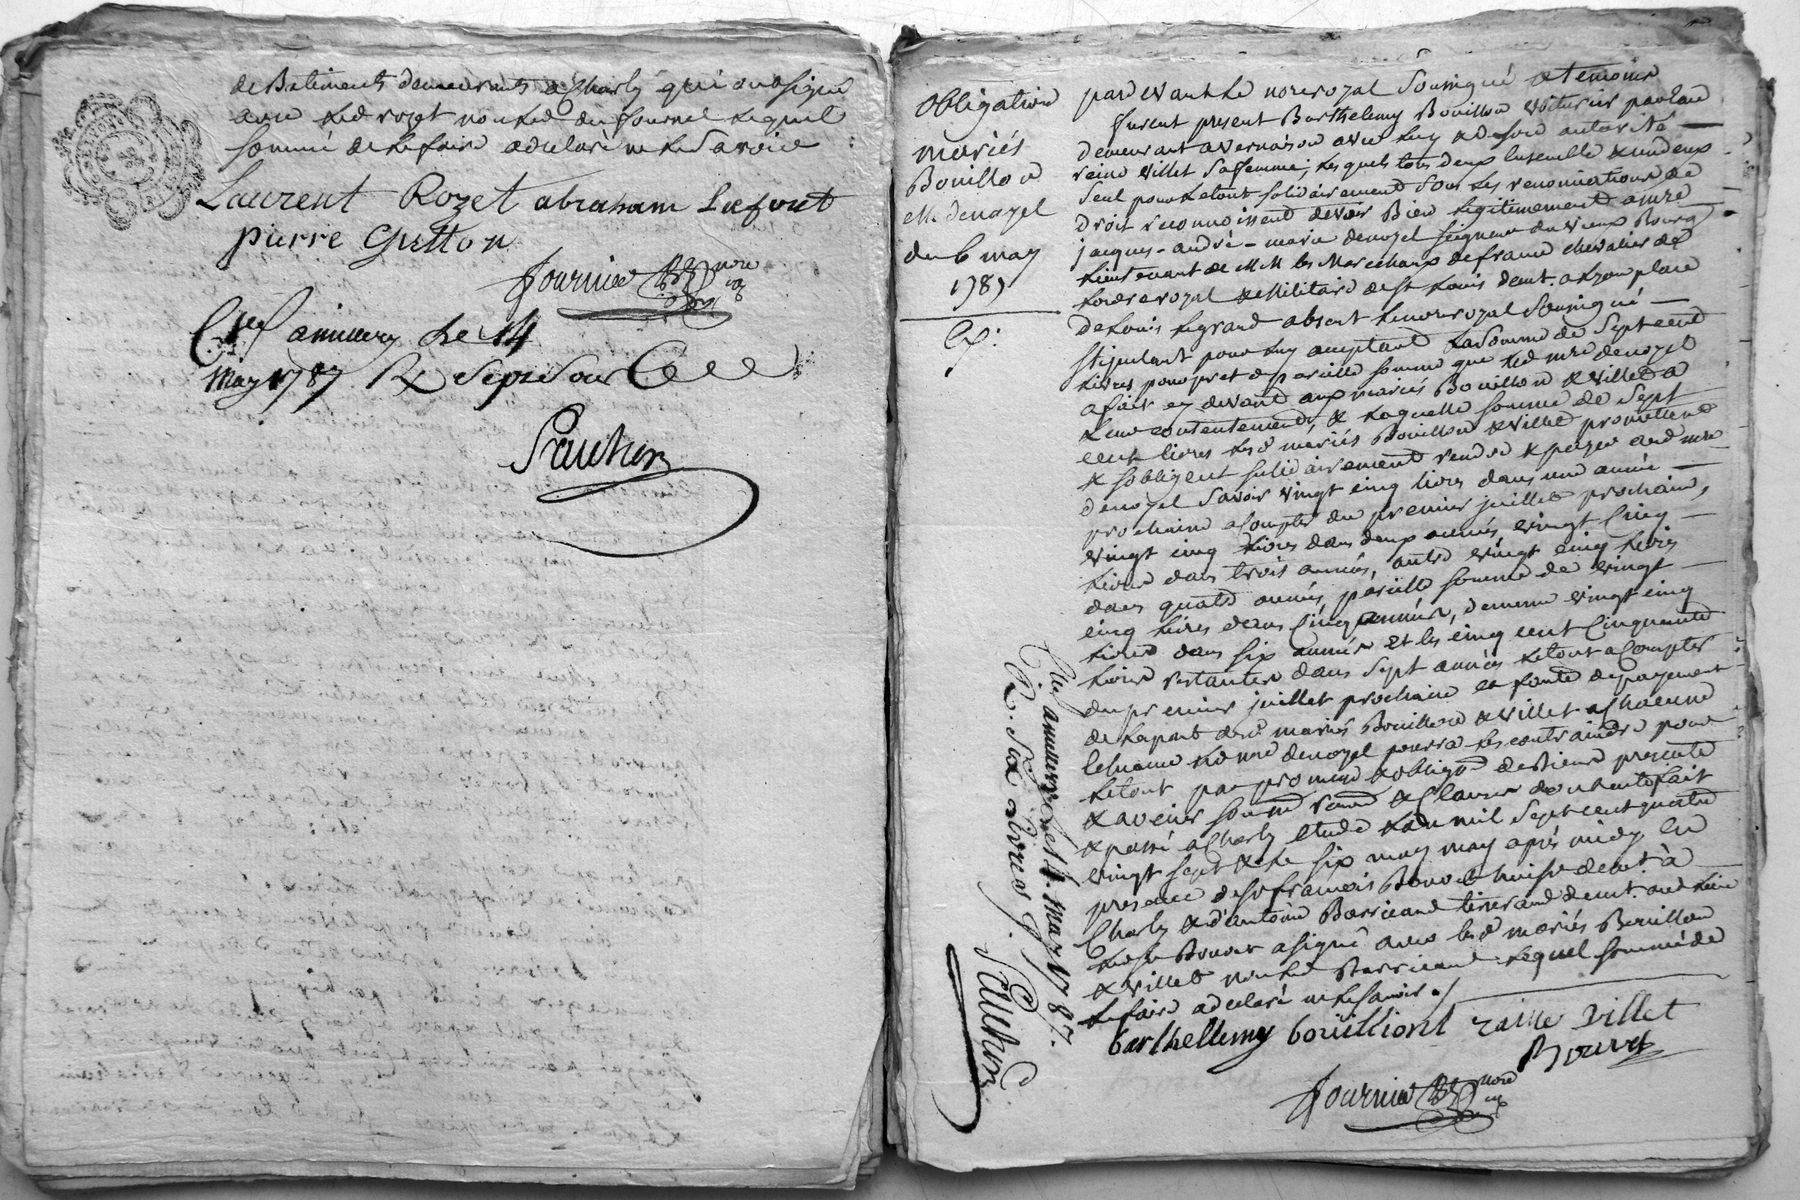 de Batiments demeurants a Charly qui ont signé
avec led rozet non led du fournel lequel
sommé de le faire a déclaré ne le savoir
Laurent Rozet abraham Lafont
pierre Gretton
fournier nore
Clé a millery le 14
may 1787 R Seize sous
Frauchon
obligation
mariés
Bouillon
M. denoyel
du 6 may
1787
Ex.
pardevant le nore royal Soussigné et temoins
furent present Barthelemy Bouillon voiturier par eau
demeurant a vernaison avec luy et de son autorité
reine villet sa femme, lesquels tous deux ensemble et un deux
seul pour le tout solidairement sous les renonciations de
droit reconnoissent devoir Bien legitimement a mre
jacques-andré-marie denoyel seigneur du vieux Bourg
lieutenant de MM les Marechaux de france chevalier de
lordre royal et militaire de st Louis demt. a Lyon place
de Louis legrand absent le nore royal soussigné
stipulant pour luy acceptant la somme de sept cent
livres pour pret de pareille somme que led mre denoyel
a fait cy devant aux mariés Bouillon et villet a
leur contentement, et laquelle somme de sept
cent livres lesd mariés Bouillon et villet promettent
et sobligent solidairement rendre et payer aud mre
denoyel savoir vingt cinq livres dans une année
prochaine a compter du premier juillet prochain,
vingt cinq livres dans deux années vingt cinq
livres dans trois années, autre vingt cinq livres
dans quatre années, pareille somme de vingt
cinq livres dans cinq années, dernier vingt cinq
livres dans six années et les cinq cent cinquante
livres restantes dans sept années le tout a compter
du premier juillet prochain et faute de payement
de la part desd mariés Bouillon et villet a chacune
led mre denoyel pourra les contraindre pour
le tout par promesse obligon de Biens presents
et avenir soumon renon et clauses dont acte fait
et passé a Charly etude l'an mil sept cent quatre
vingt sept et le six may après midy en
presence de sr francois Bouvet huissier demt. à
Charly et d'antoine Barricaud tisserand demt. aud lieu
led sr Bouvet a signé avec lesd mariés Bouillon
et villet non led Barricaud lequel sommé de
le faire a declaré ne le savoir.
barthellemy boüilliont raine villet
Bouvet
fournier nore
Clé a millery le 14. may 1787.
R. six Livres
Frauchon